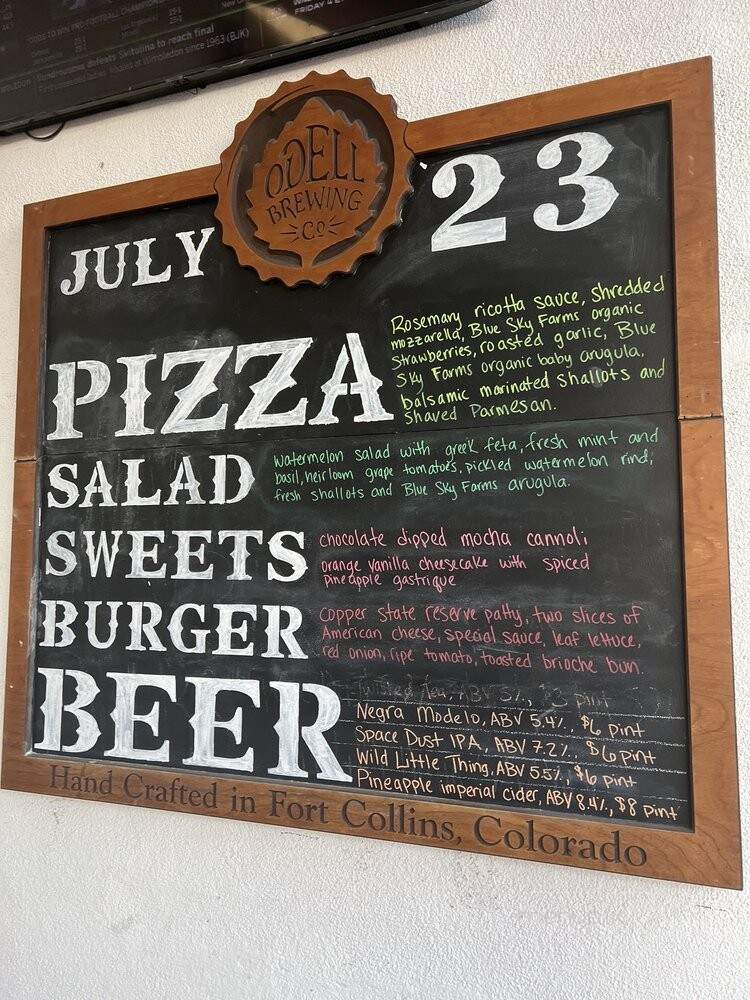 ODELL
BREWING
Co
JULY 23
PIZZA
Rosemary ricotta sauce, shredded
mozzarella, Blue Sky Farms organic
Strawberries, roasted garlic, Blue
Sky Farms organic baby arugula,
balsamic marinated shallots and
Shaved Parmesan.
SALAD
Watermelon salad with greek feta, fresh mint and
basil, heirloom grape tomatoes, pickled watermelon rind,
fresh shallots and Blue Sky Farms arugula.
SWEETS
chocolate dipped mocha cannoli
orange vanilla cheesecake with spiced
pineapple gastrique
BURGER
copper state reserve patty, two slices of
American cheese, special sauce, leaf lettuce,
red onion, ripe tomato, toasted brioche bun.
BEER
Twisted Tea, ABV 5%, $3 pint
Negra Modelo, ABV 5.4%, $6 pint
Space Dust IPA, ABV 7.2%, $6 pint
Wild Little Thing, ABV 5.5%, $6 pint
Pineapple imperial cider, ABV 8.4%, $8 pint
Hand Crafted in Fort Collins, Colorado